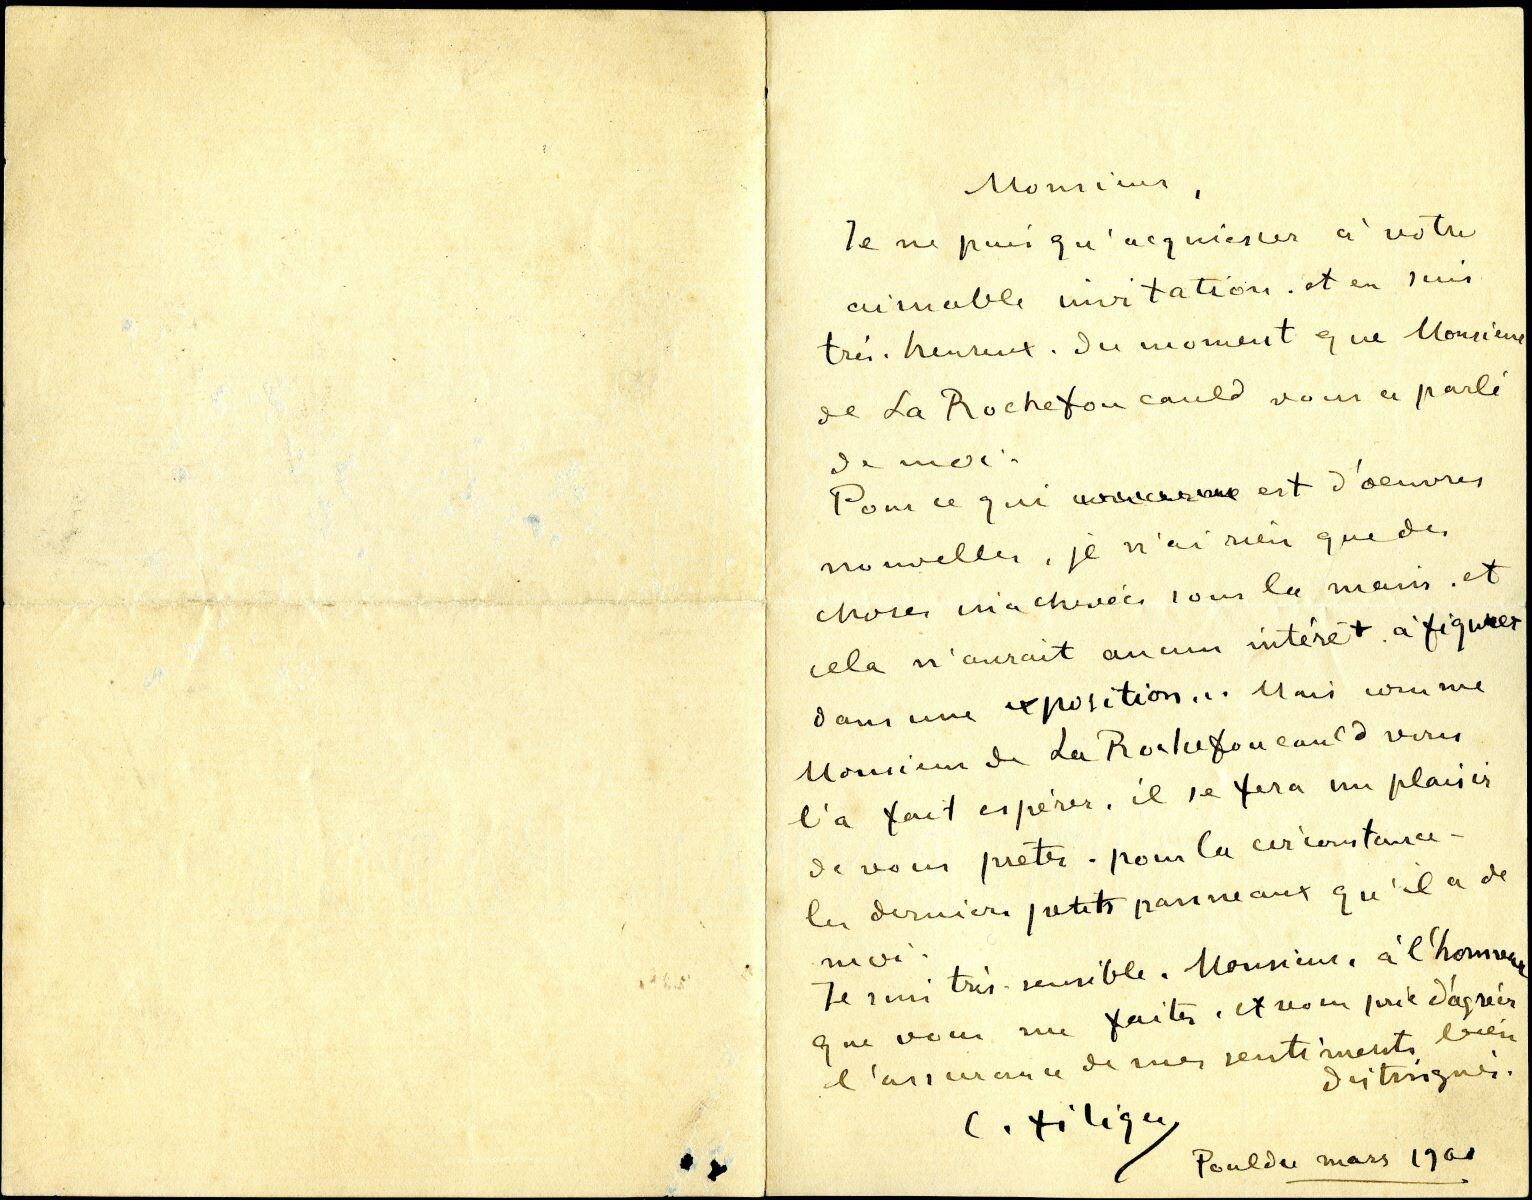 Monsieur,
Je ne puis qu'acquiescer à votre
aimable invitation. et en suis
très. heureux. du moment que Monsieur
de La Rochefoucauld vous a parlé
de moi.
Pour ce qui concerne est d'oeuvres
nouvelles, je n'ai rien que des
choses inachevées sous la main. et
cela n'aurait aucun intérêt à figurer
dans une exposition... Mais comme
Monsieur de La Rochefoucauld vous
l'a fait espérer. il se fera un plaisir
de vous prêter. pour la circonstance -
les derniers petits panneaux qu'il a de
moi.
Je suis très sensible. Monsieur. à l'honneur
que vous me faites. et vous prie d'agréer
l'assurance de mes sentiments bien
distingués.
C. Filiger
Pouldu mars 1900